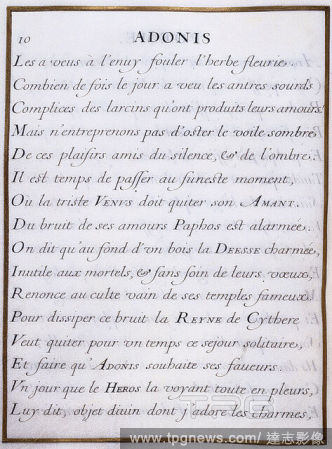 10 ADONIS
Les a veus à l'enuy fouler l'herbe fleurie.
Combien de fois le jour a veu les antres sourds
Complices des larcins qu'ont produits leurs amours!
Mais n'entreprenons pas d'oster le voile sombre
De ces plaisirs amis du silence, & de l'ombre.
Il est temps de passer au funeste moment,
Où la triste VENUS doit quiter son AMANT.
Du bruit de ses amours Paphos est alarmée.
On dit qu'au fond d'vn bois la DEESSE charmée,
Inutile aux mortels, & sans soin de leurs vœux,
Renonce au culte vain de ses temples fameux.
Pour dissiper ce bruit la REYNE de Cythere
Veut quiter pour vn temps ce sejour solitaire,
Et faire qu'ADONIS souhaite ses faueurs.
Vn jour que le HEROS la voyant toute en pleurs,
Luy dit, objet diuin dont j'adore les charmes,
www.tpgnews.com/ 達志影像